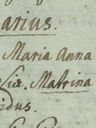 arius.
Maria Anna
Matrina
idus.